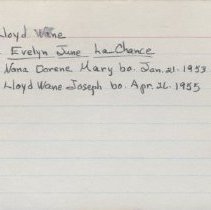 Lloyd Wane
Evelyn June La Chance
Nona Dorene Mary bo. Jan. 21. 1953
Lloyd Wane Joseph bo. Apr. 26. 1955